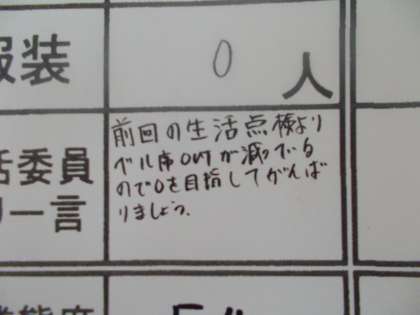 服装
0
人
活委員
一言
前回の生活点検より
ベル席OUTが減っている
ので0を目指してがんば
りましょう。
態度